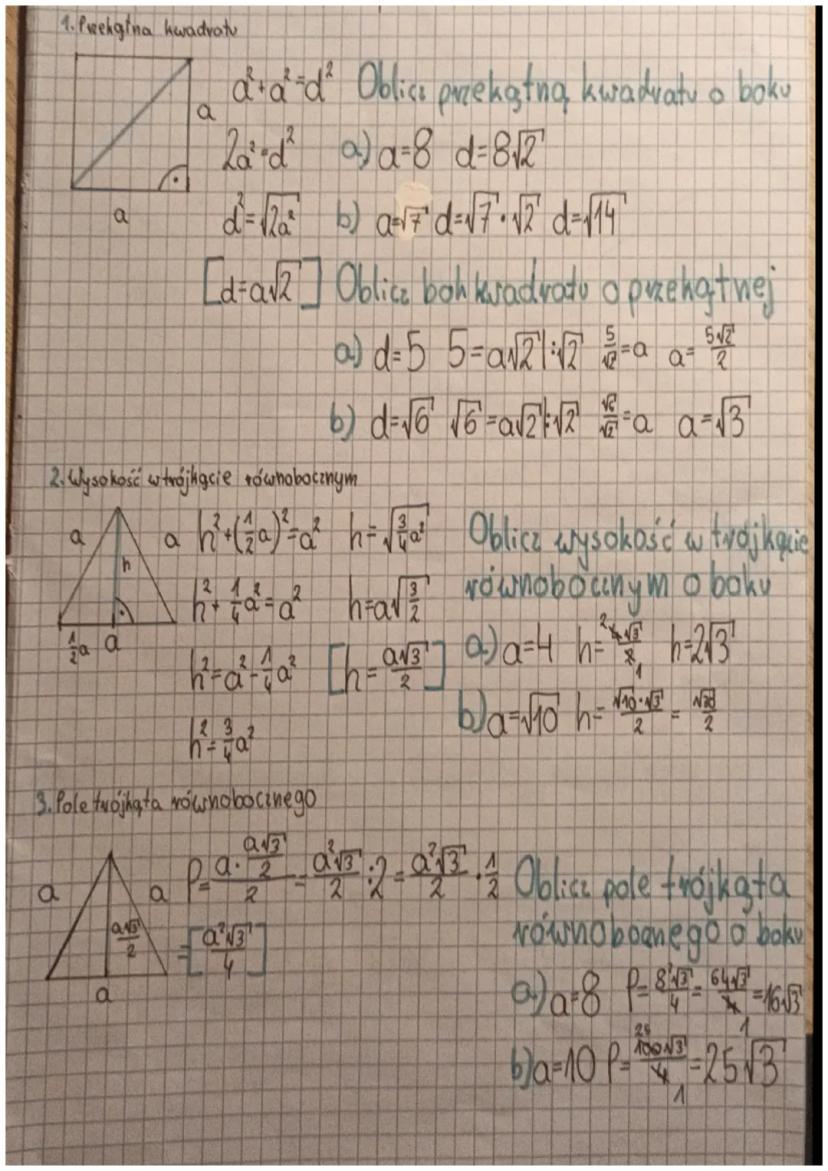 1. Przekątna kwadratu
a
a
a²+a²=d²
2a²=d²
d²=√2a²
[d=a√2]
Oblicz przekątną kwadratu o boku
a) a=8 d=8√2
b) a=√7 d=√7·√2 d=√14
Oblicz bok kwadratu o przekątnej
a) d=5 5=a√2|:√2 5/√2=a a=5√2/2
b) d=√6 √6=a√2|:√2 √6/√2=a a=√3
2. Wysokość w trójkącie równobocznym
a
a
h
½a a
h²+(½a)²=a² h=√¾a²
h²+¼a²=a² h=a√3/2
h²=a²-¼a² [h=a√3/2]
h²=¾a²
Oblicz wysokość w trójkącie
równobocznym o boku
a) a=4 h=²4√3/2 1 h=2√3
b) a=√10 h=√10·√3/2=√30/2
3. Pole trójkąta równobocznego
a
a
a√3/2
a
P=a·a√3/2/2=a²√3/2:2=a²√3/2·½
=[a²√3/4]
Oblicz pole trójkąta
równobocznego o boku
a) a=8 P=8²√3/4=64√3/4=16√3
1
b) a=10 P=25 100√3/4=25√3
1